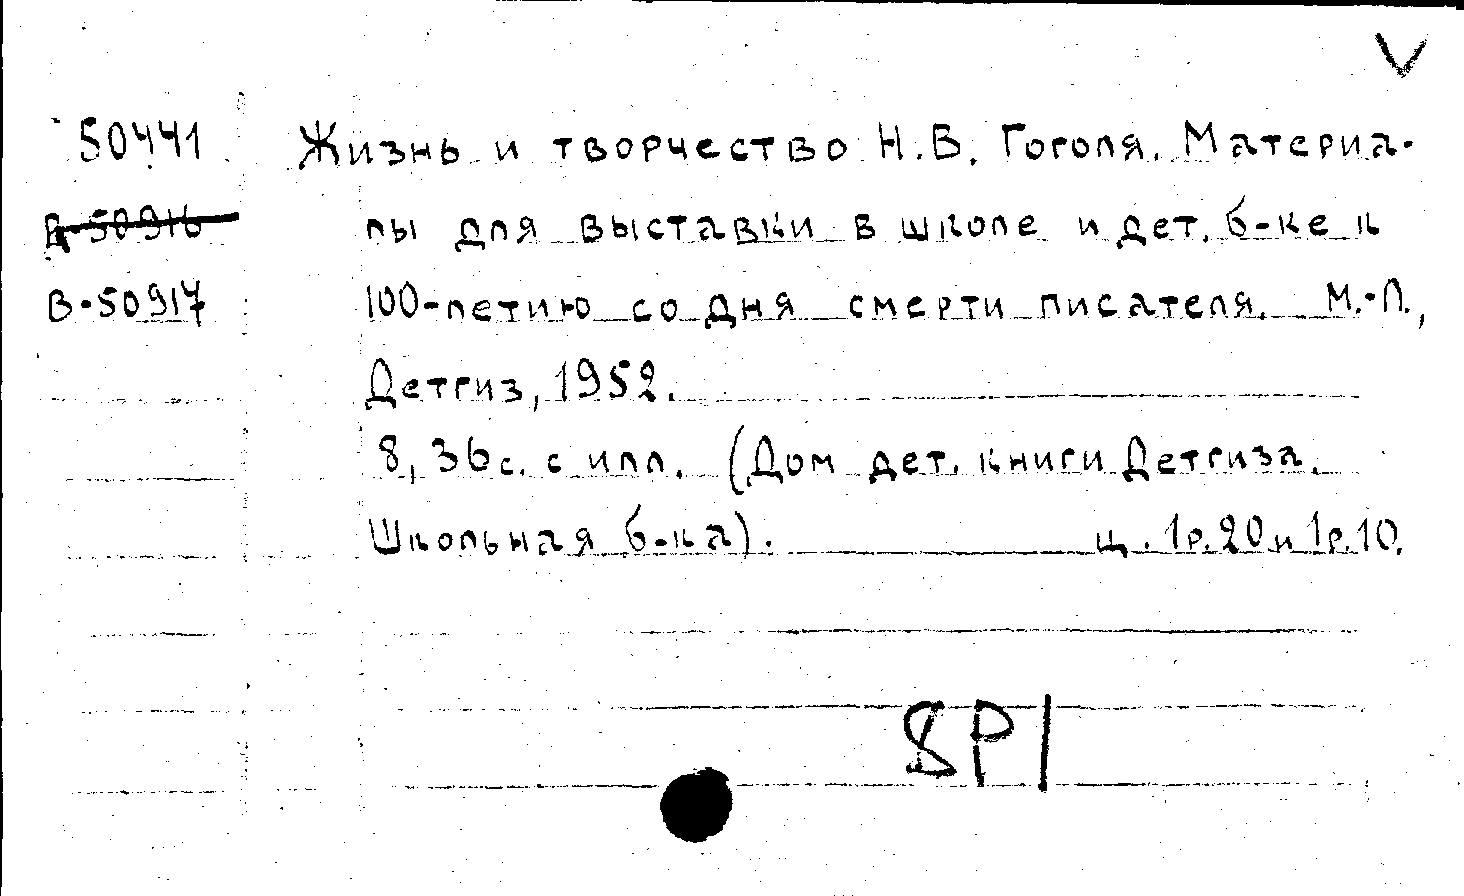 V
50441 Жизнь и творчество Н.В. Гоголя. Материа-
В-50916 лы для выставки в школе и дет. б-ке к
В-50917 100-летию со дня смерти писателя. М.-Л.,
Детгиз, 1952.
8, 36с. с илл. (Дом дет. книги Детгиза.
Школьная б-ка). ц. 1р.20 и 1р.10.
8P1